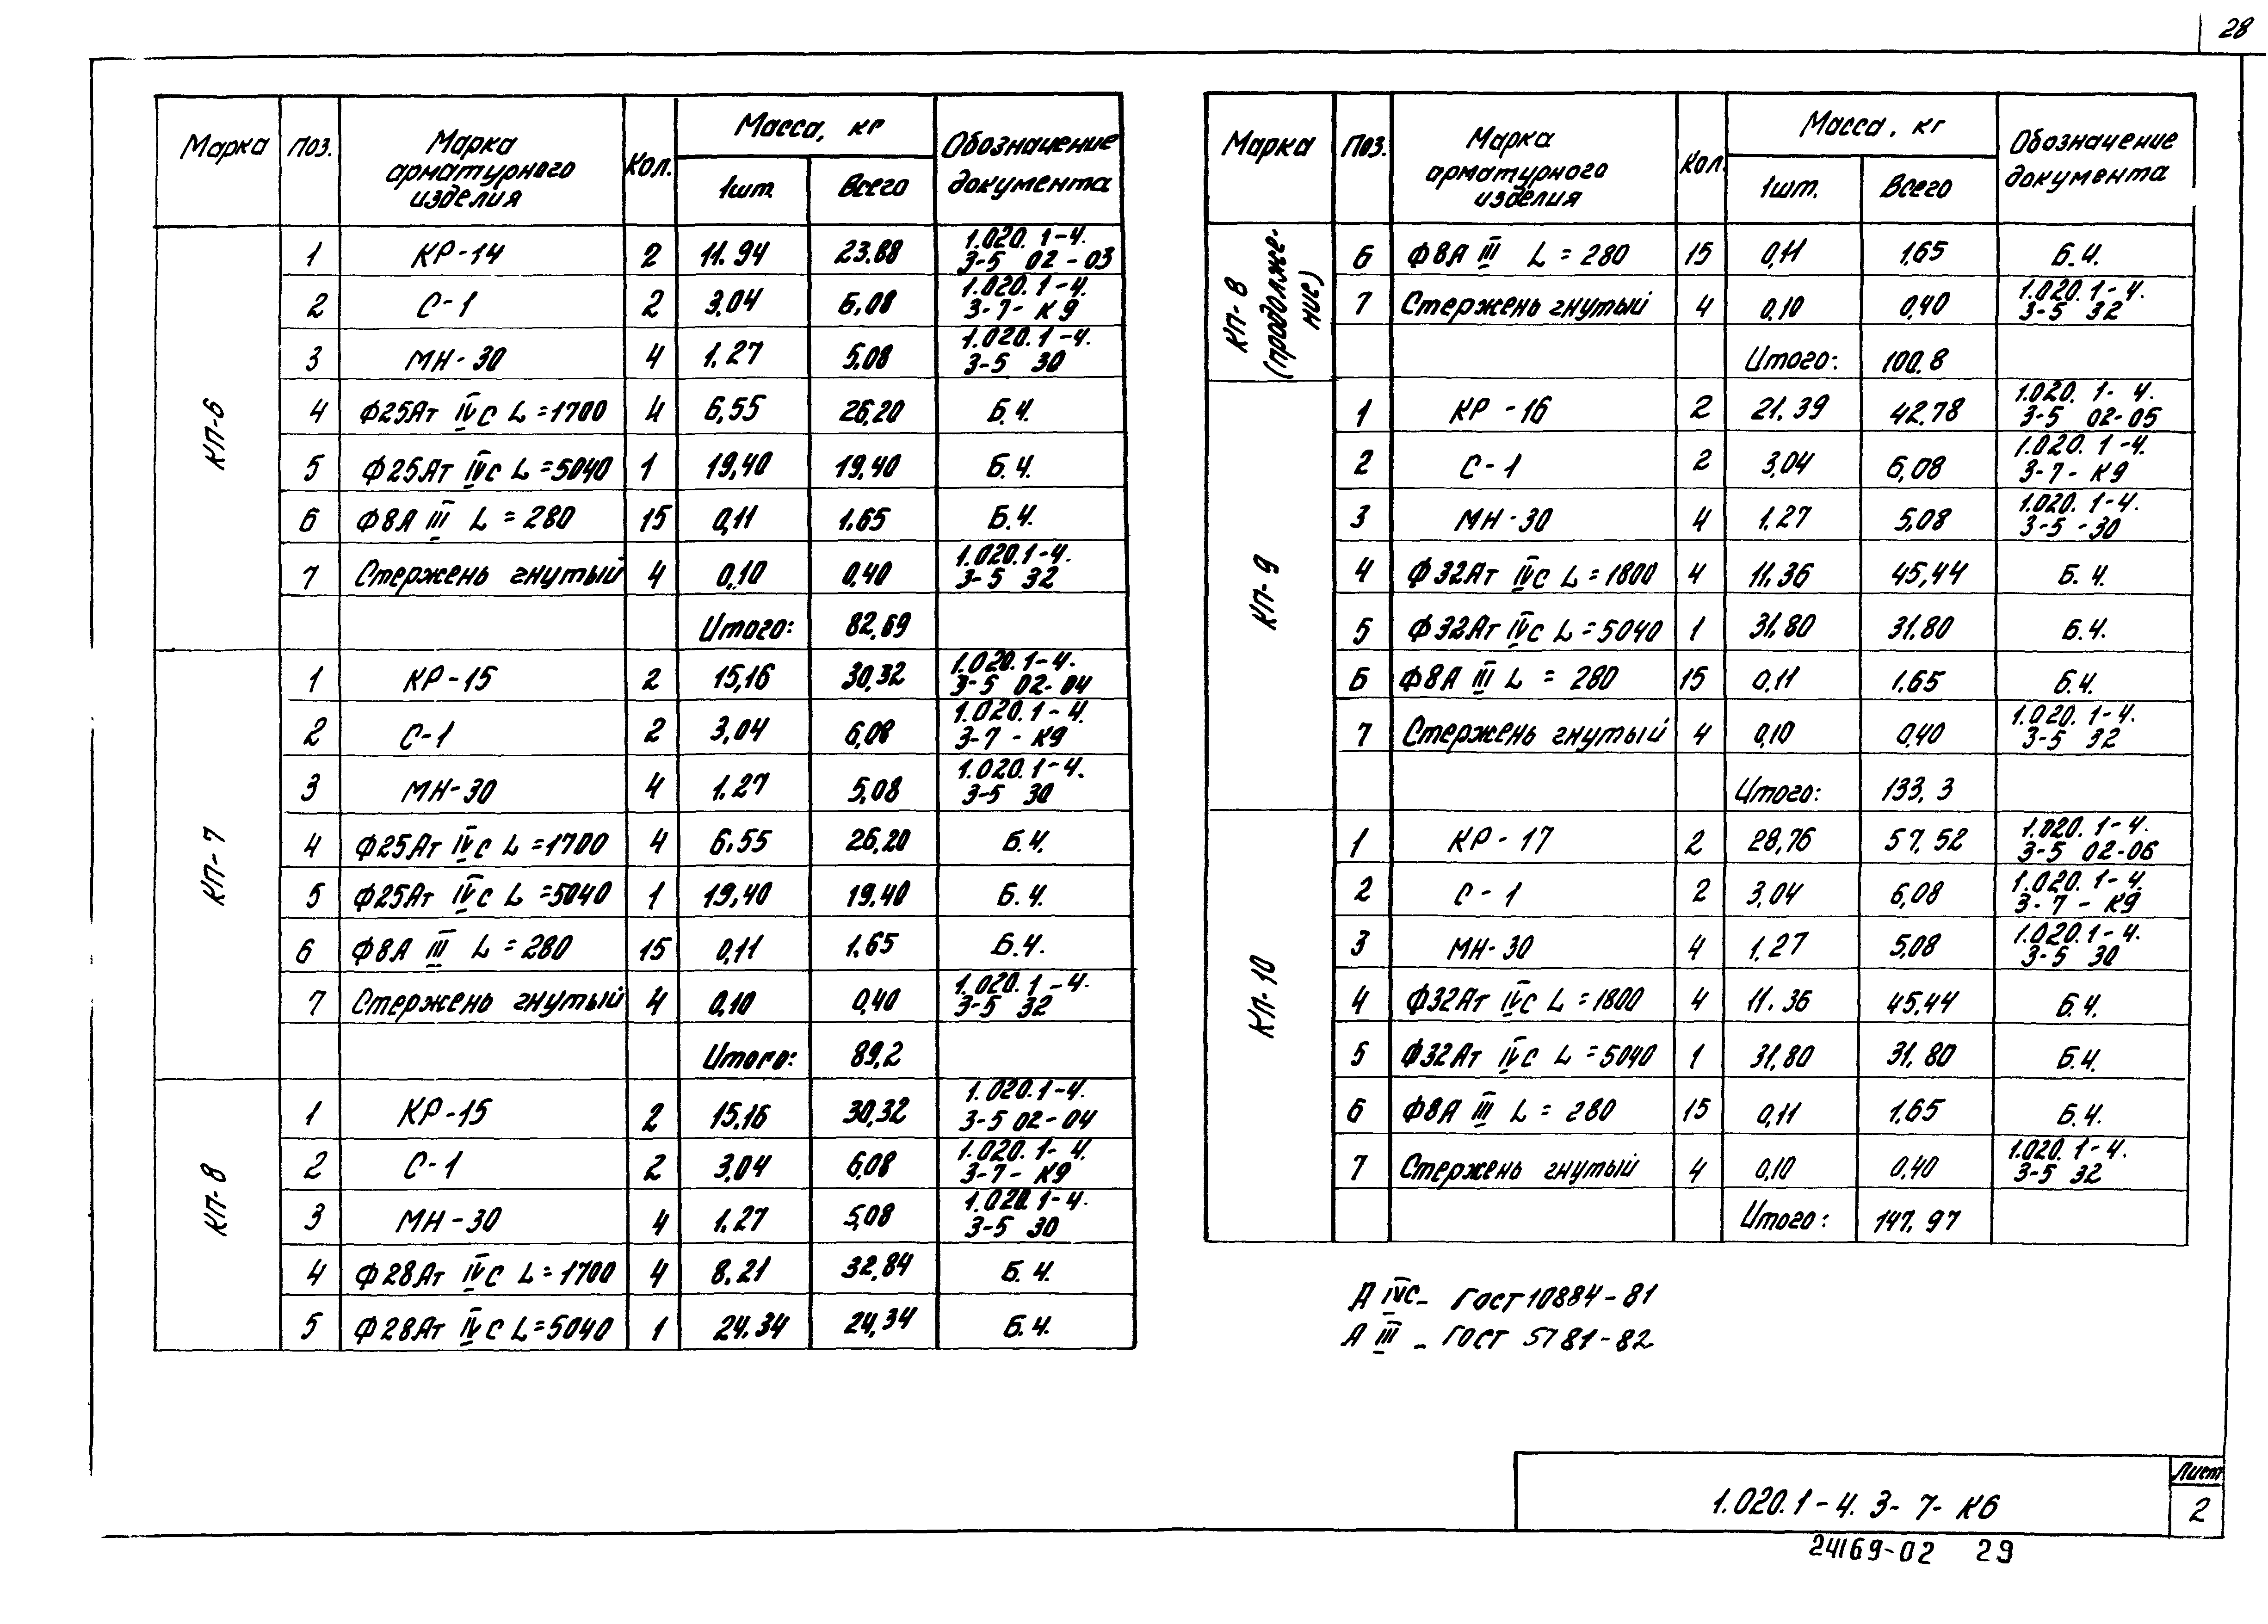 28
Марка Поз. Марка арматурного изделия Кол. Масса, кг Обозначение документа
1шт. Всего
КП-6
1 КР-14 2 11.94 23.88 1.020.1-4. 3-5 02-03
2 С-1 2 3,04 6,08 1.020.1-4. 3-7-К9
3 МН-30 4 1.27 5,08 1.020.1-4. 3-5 30
4 Ф25Ат IVС L=1700 4 6,55 26,20 Б.Ч.
5 Ф25Ат IVС L=5040 1 19,40 19,40 Б.Ч.
6 Ф8А III L=280 15 0,11 1.65 Б.Ч.
7 Стержень гнутый 4 0,10 0,40 1.020.1-4. 3-5 32
Итого: 82,69
КП-7
1 КР-15 2 15,16 30,32 1.020.1-4. 3-5 02-04
2 С-1 2 3,04 6,08 1.020.1-4. 3-7-К9
3 МН-30 4 1.27 5,08 1.020.1-4. 3-5 30
4 Ф25Ат IVС L=1700 4 6,55 26,20 Б.Ч.
5 Ф25Ат IVС L=5040 1 19,40 19.40 Б.Ч.
6 Ф8А III L=280 15 0,11 1,65 Б.Ч.
7 Стержень гнутый 4 0,10 0,40 1.020.1-4. 3-5 32
Итого: 89,2
КП-8
1 КР-15 2 15.16 30,32 1.020.1-4. 3-5 02-04
2 С-1 2 3,04 6,08 1.020.1-4. 3-7-К9
3 МН-30 4 1.27 5,08 1.020.1-4. 3-5 30
4 Ф28Ат IVС L=1700 4 8.21 32,84 Б.Ч.
5 Ф28Ат IVС L=5040 1 24.34 24,34 Б.Ч.
Марка Поз. Марка арматурного изделия Кол. Масса, кг Обозначение документа
1шт. Всего
КП-8 (продолжение)
6 Ф8А III L=280 15 0,11 1,65 Б.Ч.
7 Стержень гнутый 4 0,10 0,40 1.020.1-4. 3-5 32
Итого: 100.8
КП-9
1 КР-16 2 21.39 42.78 1.020.1-4. 3-5 02-05
2 С-1 2 3,04 6,08 1.020.1-4. 3-7-К9
3 МН-30 4 1.27 5,08 1.020.1-4. 3-5-30
4 Ф32Ат IVС L=1800 4 11.36 45,44 Б.Ч.
5 Ф32Ат IVС L=5040 1 31.80 31.80 Б.Ч.
6 Ф8А III L=280 15 0,11 1.65 Б.Ч.
7 Стержень гнутый 4 0,10 0,40 1.020.1-4. 3-5 32
Итого: 133,3
КП-10
1 КР-17 2 28,76 57,52 1.020.1-4. 3-5 02-06
2 С-1 2 3,04 6,08 1.020.1-4. 3-7-К9
3 МН-30 4 1.27 5,08 1.020.1-4. 3-5 30
4 Ф32Ат IVС L=1800 4 11.36 45,44 Б.Ч.
5 Ф32Ат IVС L=5040 1 31,80 31,80 Б.Ч.
6 Ф8А III L=280 15 0,11 1.65 Б.Ч.
7 Стержень гнутый 4 0,10 0,40 1.020.1-4. 3-5 32
Итого: 147,97
А IVС- Гост 10884-81
А III - ГОСТ 5781-82
1.020.1-4.3-7-К6
Лист
2
24169-02 29